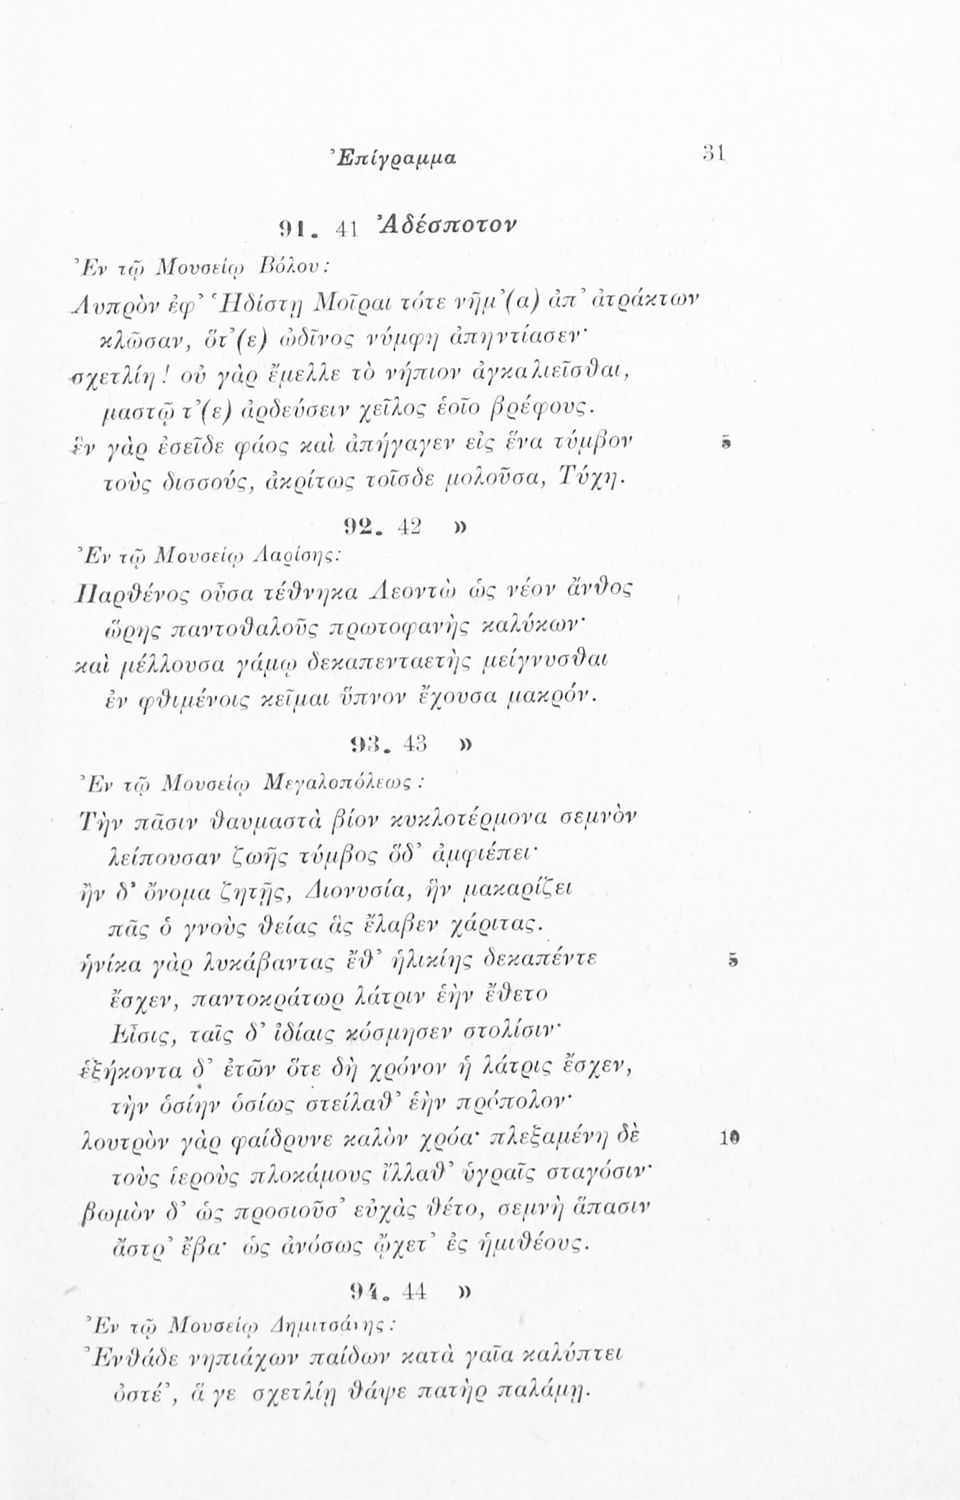 Ἐπίγραμμα 31
91. 41 Ἀδέσποτον
Ἐν τῷ Μουσείῳ Βόλου:
Λυπρὸν ἐφ’ Ἡδίστῃ Μοῖραι τότε νῆμ’(α) ἀπ’ ἀτράκτων
κλῶσαν, ὅτ’(ε) ὠδῖνος νύμφη ἀπηντίασεν·
σχετλίη! οὐ γὰρ ἔμελλε τὸ νήπιον ἀγκαλιεῖσθαι,
μαστῷ τ’(ε) ἀρδεύσειν χεῖλος ἑοῖο βρέφους.
ἓν γὰρ ἐσεῖδε φάος καὶ ἀπήγαγεν εἰς ἕνα τύμβον 5
τοὺς δισσούς, ἀκρίτως τοῖσδε μολοῦσα, Τύχη.
92. 42 »
Ἐν τῷ Μουσείῳ Λαρίσης:
Παρθένος οὖσα τέθνηκα Λεοντὼ ὡς νέον ἄνθος
ὥρης παντοθαλοῦς πρωτοφανὴς καλύκων·
καὶ μέλλουσα γάμῳ δεκαπενταετὴς μείγνυσθαι
ἐν φθιμένοις κεῖμαι ὕπνον ἔχουσα μακρόν.
93. 43 »
Ἐν τῷ Μουσείῳ Μεγαλοπόλεως:
Τὴν πᾶσιν θαυμαστὰ βίον κυκλοτέρμονα σεμνὸν
λείπουσαν ζωῆς τύμβος ὅδ’ ἀμφιέπει·
ἢν δ’ ὄνομα ζητῇς, Διονυσία, ἣν μακαρίζει
πᾶς ὁ γνοὺς θείας ἃς ἔλαβεν χάριτας.
ἡνίκα γὰρ λυκάβαντας ἔθ’ ἡλικίης δεκαπέντε 5
ἔσχεν, παντοκράτωρ λάτριν ἑὴν ἔθετο
Εἶσις, ταῖς δ’ ἰδίαις κόσμησεν στολίσιν·
ἑξήκοντα δ’ ἐτῶν ὅτε δὴ χρόνον ἡ λάτρις ἔσχεν,
τὴν ὁσίην ὁσίως στείλαθ’ ἑὴν πρόπολον·
λουτρὸν γὰρ φαίδρυνε καλὸν χρόα· πλεξαμένη δὲ 10
τοὺς ἱεροὺς πλοκάμους ἵλλαθ’ ὑγραῖς σταγόσιν·
βωμὸν δ’ ὡς προσιοῦσ’ εὐχὰς θέτο, σεμνὴ ἅπασιν
ἄστρ’ ἔβα· ὡς ἀνόσως ᾤχετ’ ἐς ἡμιθέους.
94. 44 »
Ἐν τῷ Μουσείῳ Δημιτσάνης:
Ἐνθάδε νηπιάχων παίδων κατὰ γαῖα καλύπτει
ὀστέ’, ἅ γε σχετλίῃ θάψε πατὴρ παλάμῃ.